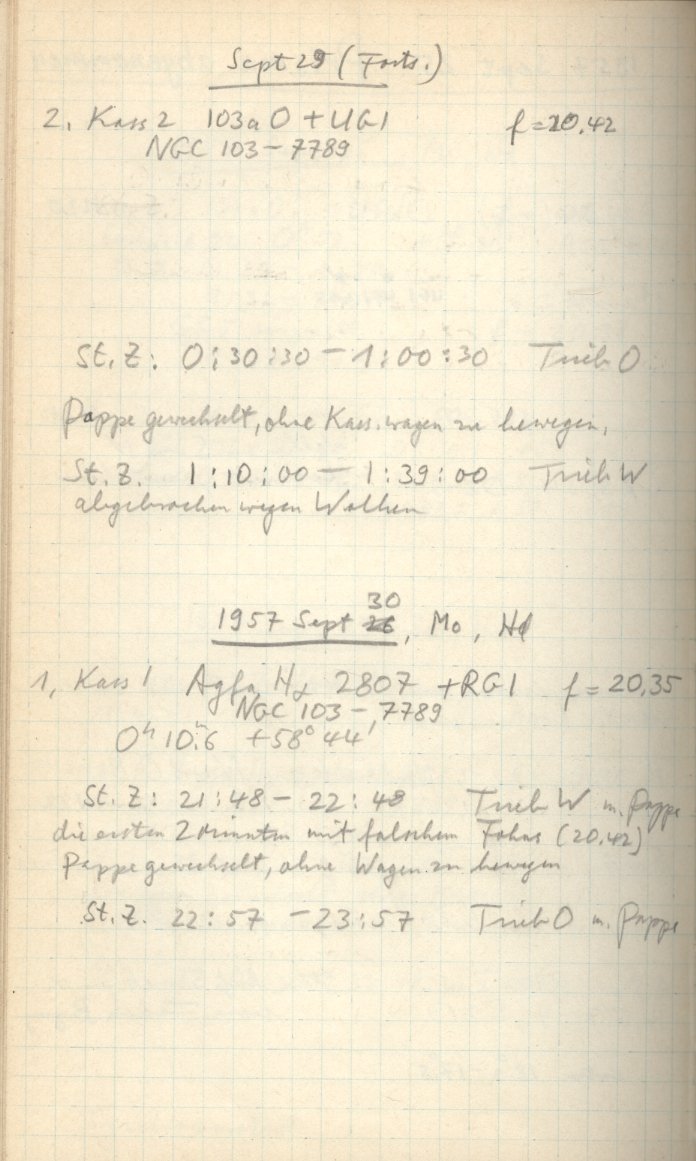 Sept 29 (Forts.)
2, Kass 2 103a O + UG1 f = 20,42
NGC 103 - 7789
St. Z: 0:30:30 - 1:00:30 Trieb O
Pappe gewechselt, ohne Kass.wagen zu bewegen,
St. Z. 1:10:00 - 1:39:00 Trieb W
abgebrochen wegen Wolken
30
1957 Sept 26, Mo, Hd
1, Kass 1 Agfa Hα 2807 + RG1 f = 20,35
NGC 103 - 7789
0h 10m.6 +58° 44'
St. Z: 21:48 - 22:48 Trieb W m. Pappe
die ersten 2 Minuten mit falschem Fokus (20,42)
Pappe gewechselt, ohne Wagen zu bewegen
St. Z. 22:57 - 23:57 Trieb O m. Pappe